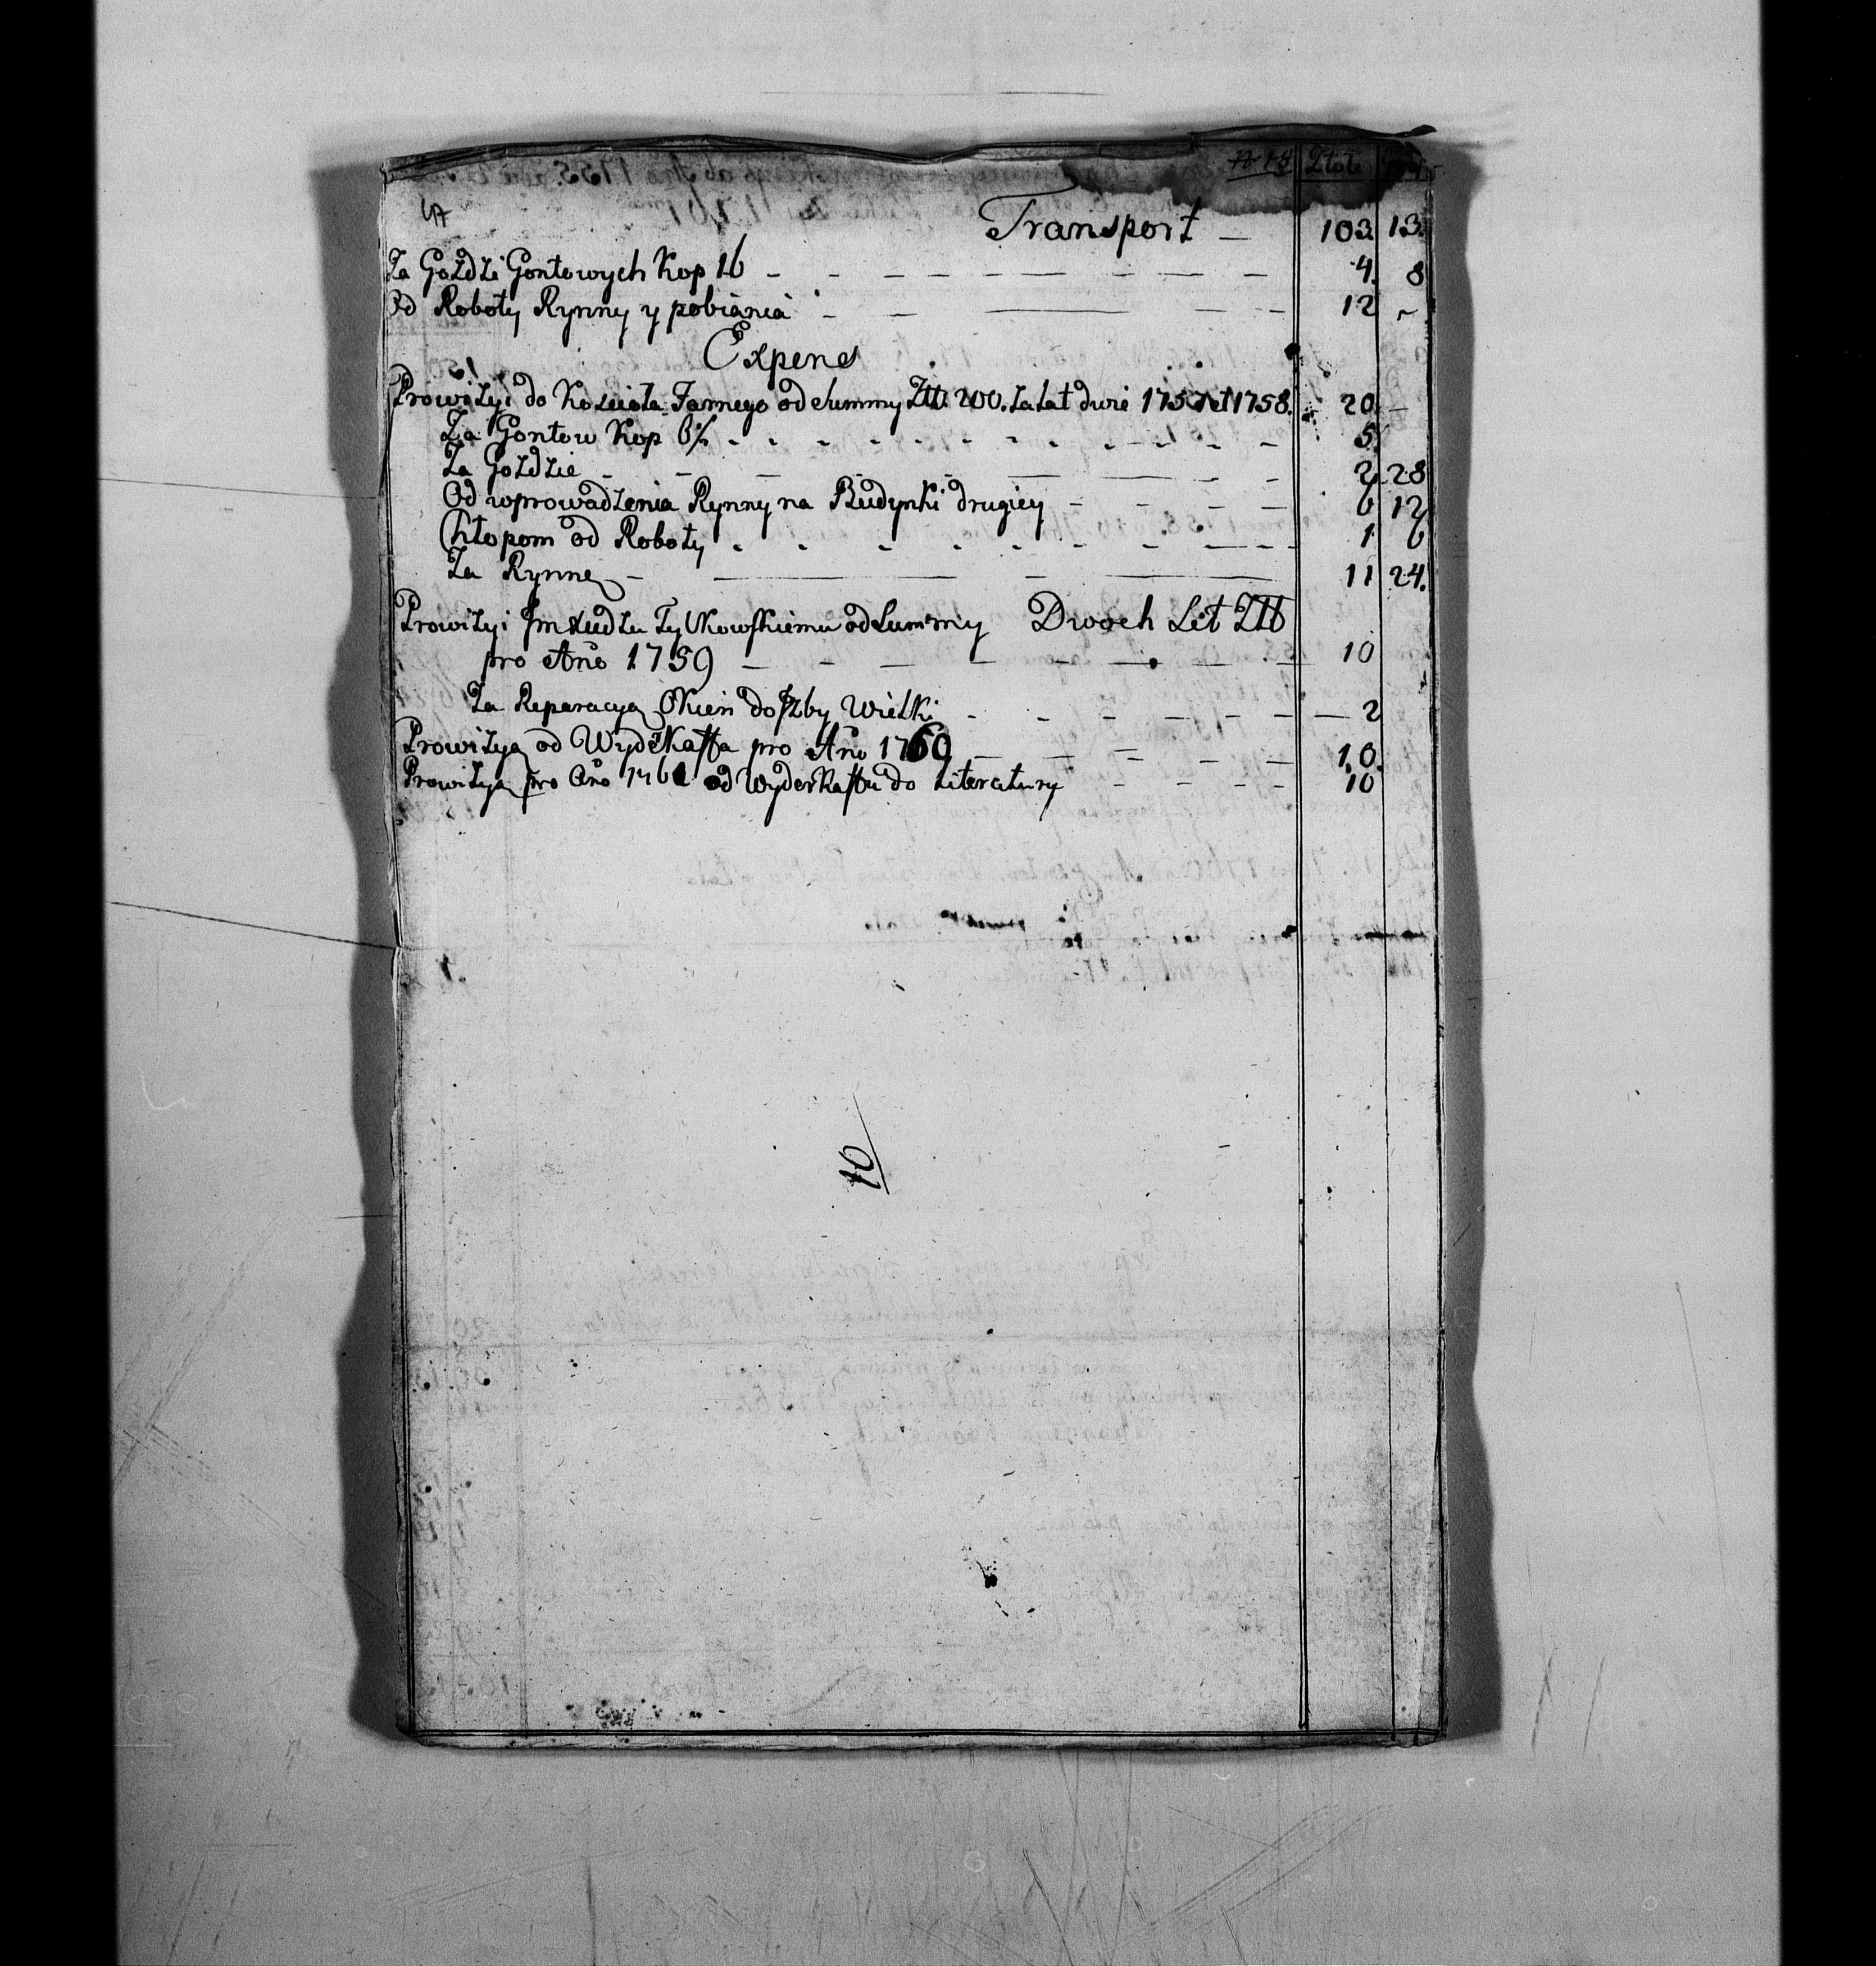 Złote
Transport — 103. 13.
Za Gozdzi Gontowych Kop 16 - - - - 4. 8
Od Roboty Rynny y pobiania - - - 12 ~
Expens
Prowizyi do Kosciola Farnego od Summy Złł. 200. za lat dwie 1757 et 1758. 20. —
Za Gontow Kop 6½ - - - - 5.
Za Gozdzie - - - - 2. 28
Od wprowadzenia Rynny na Budynki drugiey - - - 6 12
Chłopom od Roboty - - - - 1 6
Za Rynnę - - - - 11 24.
Prowizyi od Summy Dwoch Set Złł
pro Año 1759 - - - - 10
Za Reparacyą Okien do Jzby Wielki - - - - 2
Prowizya od pro Año 1760 - - - - 10.
Prowizya pro Año 1761 od Wyderkaffu do Literatury - - - - 10
10